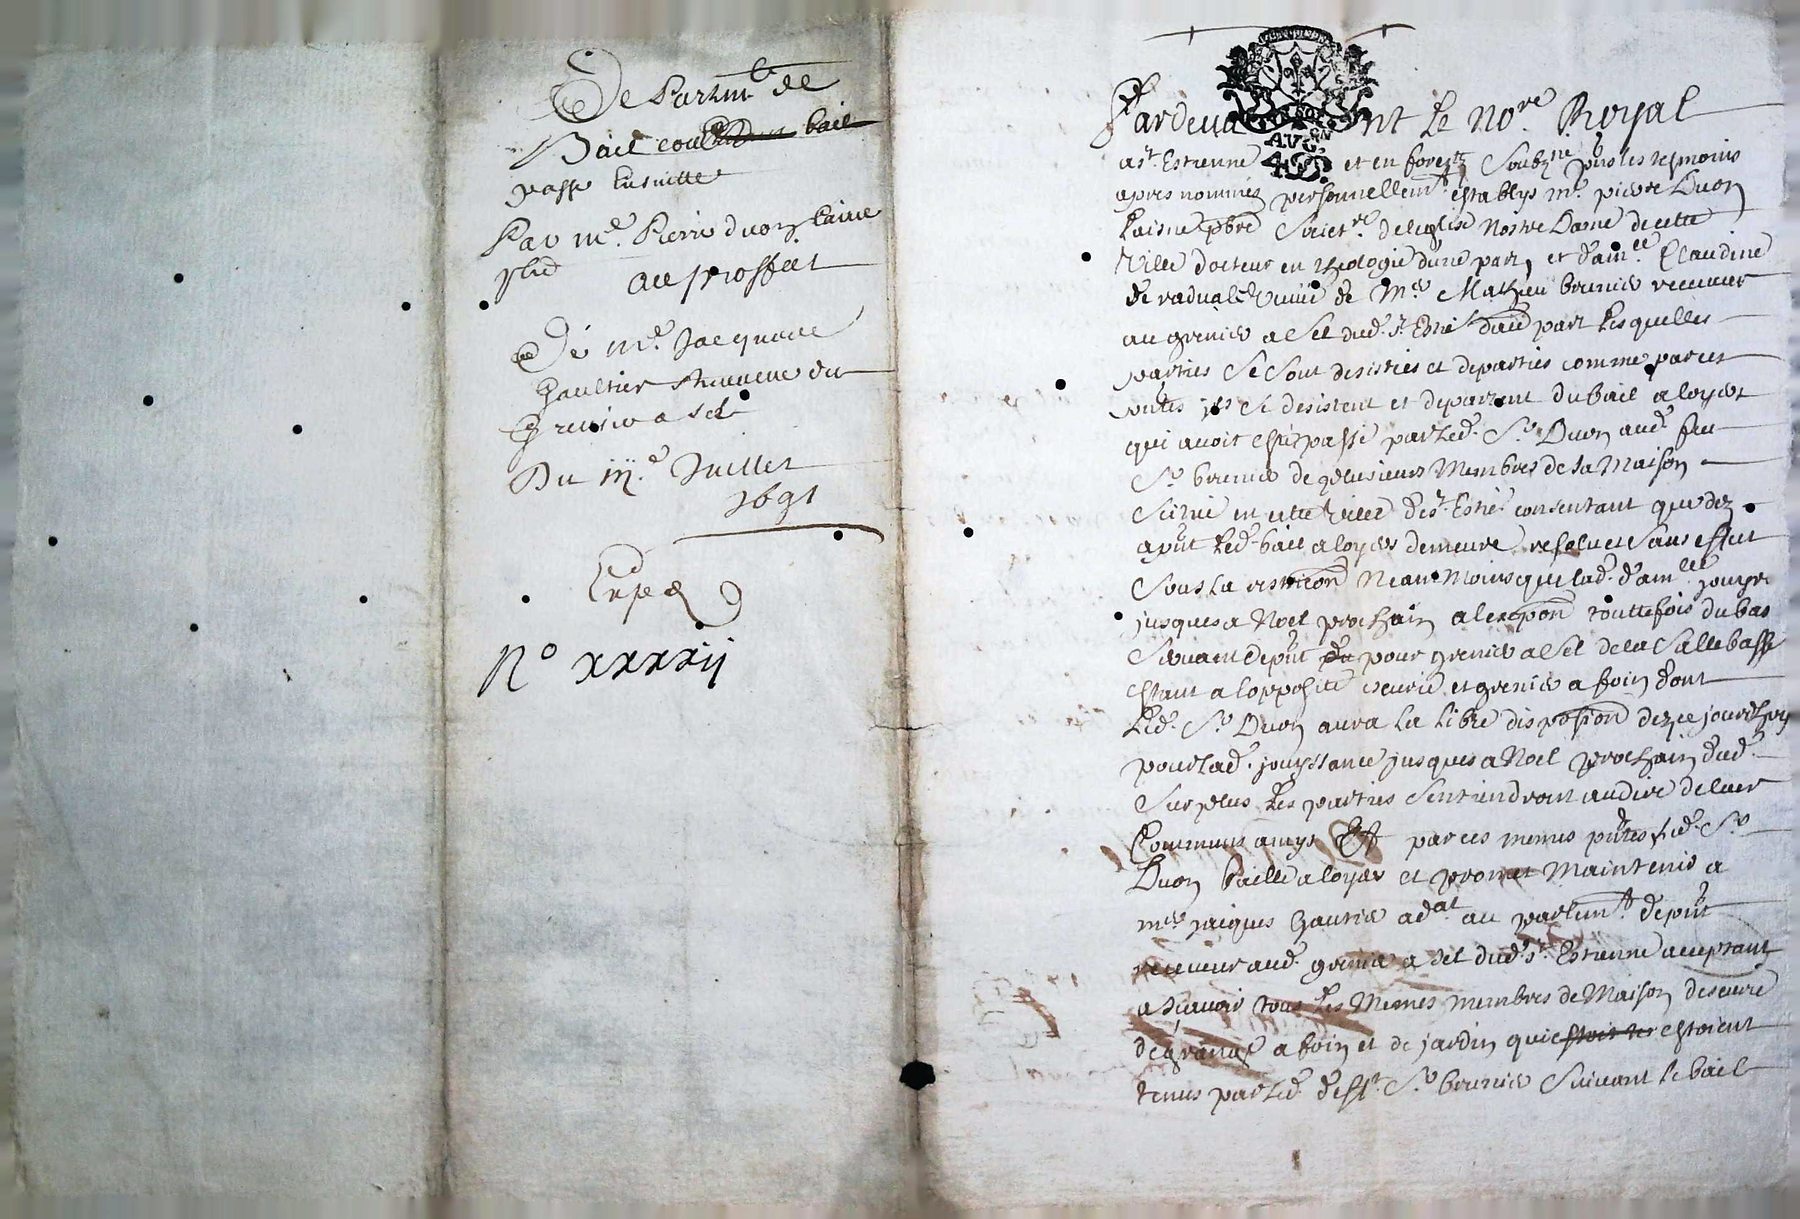 Departem.t de
Bail
passé ensuitte
Par m.e Pierre duon laine
pbre au proffict
De m.e Jacques
Gaultier receveur du
Grenier a sel
Du iij.e Juillet
1691
Exped
N.o xxxxij
Pardevant Le No.re Royal
a S.t Estienne AVG.ON 40.S. et en forestz soubz.né p̄ns les tesmoins
apres nommés personnellem.t establys m.e pierre Duon
Laisne pbre Societ.re de leglise Nostre Dame de cette
Ville docteur en theologie d'une part, et dam.lle Claudine
de vefue de M.re Mathieu brunier receveur
au grenier a Sel dud. S.t Esti.e d'au.e part Lesquelles
parties se sont desistées et departies comme par ces
p̄ntes ils se desistent et departent du bail a loyer
qui avoit esté passé par Led. S.r Duon aud. feu
S.r brunier de plusieurs Membres de sa Maison
Scituée en cette ville de S.t Esti.e consentant que dez
a p̄nt Led. bail a loyer demeure resolu et sans effect
Sous la Neanmoins que lad. dam.lle jouyra
jusques a Noel prochain a lexception touttefois du bas
servant de p̄nt pour grenier a Sel de la Salle basse
estant a lopposite escurie et grenier a foin dont
Led. S.r Duon aura La Libre disposion dez ce jourdhuy
pour lad. jouyssance jusques a Noel prochain dud.
Surplus Les parties s'entiendront au dire de leur
Communs amys Et par ces memes p̄ntes Led. S.r
Duon baille a loyer et promet Maintenir a
m.re jaques Gautier ad.at au parlem.t de p̄nt
receveur aud. grenier a Sel dud. S.t Estienne acceptant
a scavoir tous Les Memes membres de Maison descurie
de grange a foin et de jardin qui estoient
tenus par Led. deff.t S.r brunier Suivant le bail